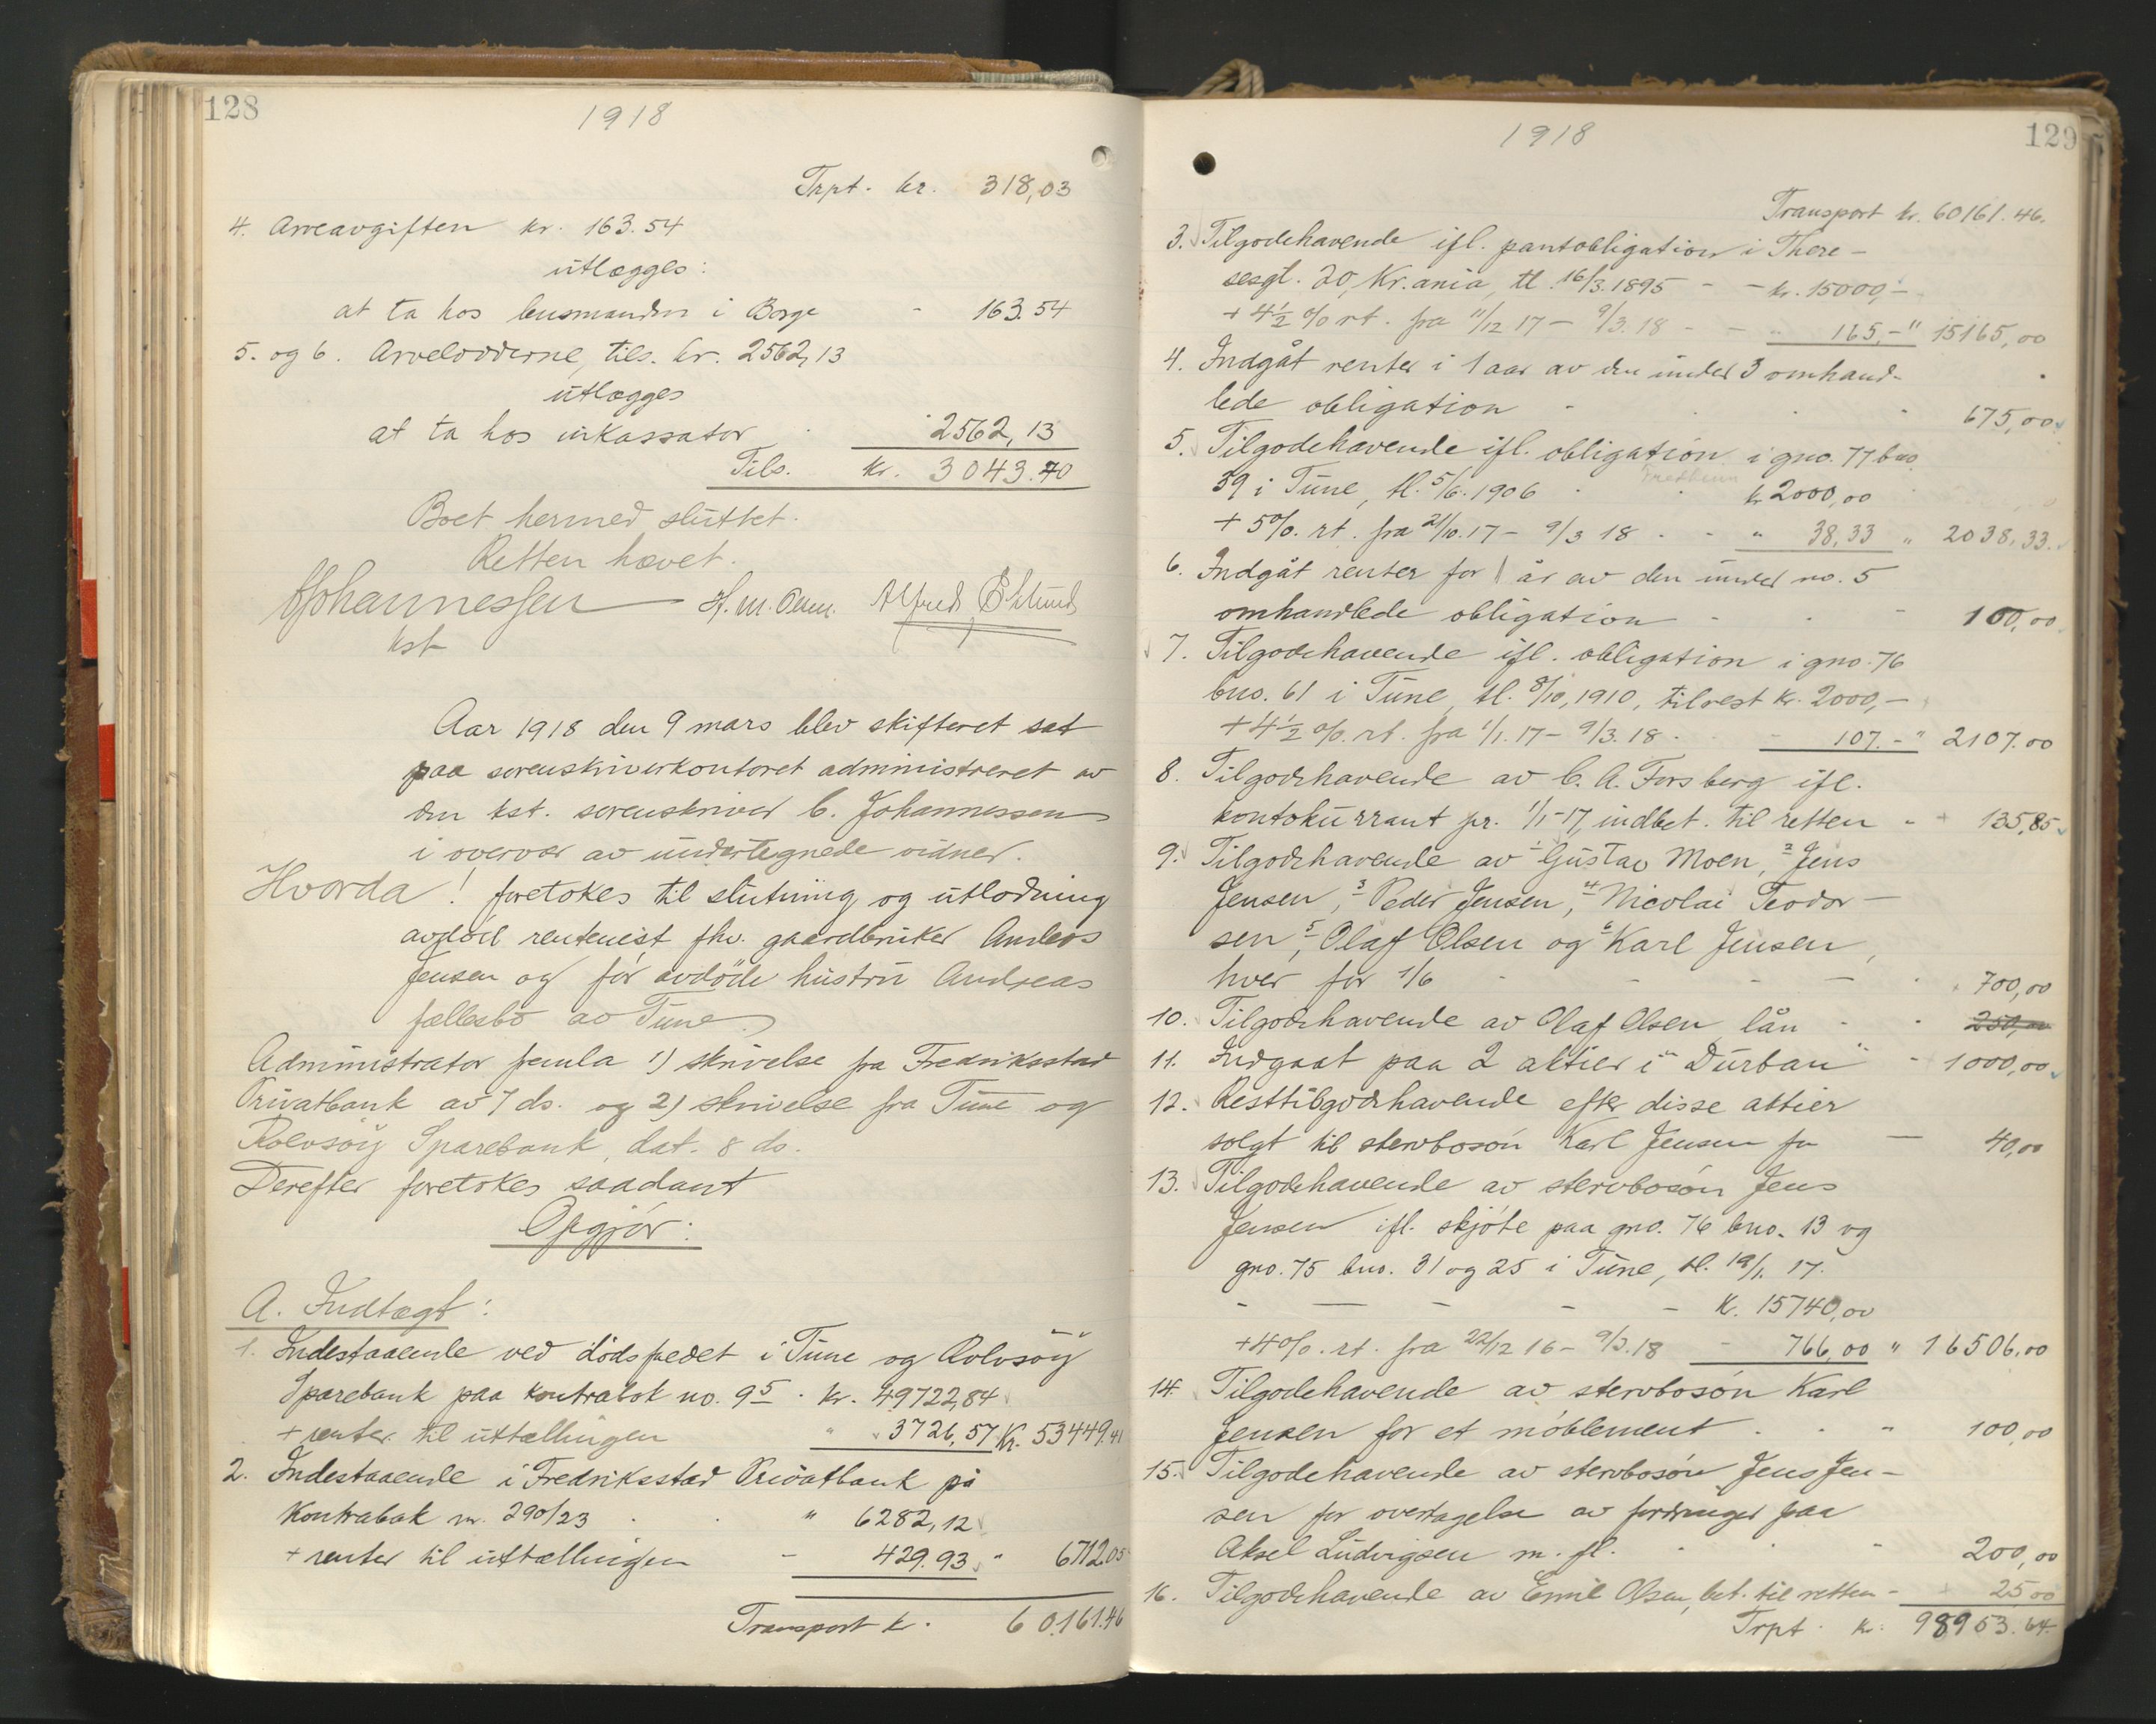 128
1918
Trpt. kr. 318,03
4. Arveavgiften kr. 163.54
utlægges:
at ta hos lensmanden i Borge - 163.54
5. og 6. Arvelodderne, tils. kr. 2562,13
utlægges
at ta hos inkassator 2562,13
Tils. kr. 3043.70
Boet hermed sluttet.
Retten hævet.
CJohannessen H. M. Olsen. Alfred Eklund
kst
Aar 1918 den 9 mars blev skifteret sat
paa sorenskriverkontoret administreret av
den kst. sorenskriver C. Johannessen
i overvær av undertegnede vidner.
Hvorda! foretokes til slutning og utlodning
avdöd rentenist fhv. gaardbruker Andreas
Jensen og før avdöde hustru Andreas
fællesbo av Tune.
Administrator femla 1) skrivelse fra Fredriksstad
Privatbank av 7 ds. og 2) skrivelse fra Tune og
Rolvsöy Sparebank, dat. 8 ds.
Derefter foretokes saadant
Opgjör:
A. Indtægt:
1. Indestaaende ved dödsfaldet i Tune og Rolvsöy
Sparebank paa kontrabok no. 95 . kr. 49722,84
+ renter til uttællingen " 3726,57 Kr. 53449.41
2. Indestaaende i Fredriksstad Privatbank på
Kontrabok nr. 290/23 . . " 6282,12
+ renter til uttællingen - 429.93 " 6712.05
Transport kr. 60.161.46
1918
129
Transport kr. 60161.46.
3. Tilgodehavende ifl. pantobligation i There-
sesgt. 20, Kr.ania, tl. 16/3.1895 - - kr. 15000,-
+ 4 1/2 % rt. fra 11/12 17 - 9/3. 18 - - " 165,- " 15165,00
4. Indgåt renter i 1 aar av den under 3 omhand-
lede obligation - 675,00
5. Tilgodehavende ifl. obligation i gno. 77 bno
59 i Tune, tl. 5/6.1906 Fredheim kr 2000,00
+ 5%. rt. fra 21/10. 17 - 9/3 18 . - " 38,33 " 2038,33.
6. Indgåt renter for 1 år av den under no. 5
omhandlede obligation - - 100,00
7. Tilgodehavende ifl. obligation i gno. 76
bno. 61 i Tune, tl. 8/10, 1910, tilrest kr. 2000,-
+ 4 1/2 %. rt. fra 1/1. 17 - 9/3. 18 . - 107.- " 2107.00
8. Tilgodehavende av C. A. Forsberg ifl.
kontokurrant pr. 1/1-17, indbet. til retten - 135,85
9. Tilgodehavende av 1 Gustav Moen, 2 Jens
Jensen, 3 Peder Jensen, 4 Nicolai Teodor-
sen, 5 Olaf Olsen og 6 Karl Jensen,
hver for 1/6 - - - - 700,00
10. Tilgodehavende av Olaf Olsen lån - 250,00
11. Indgaat paa 2 aktier i "Durban" - 1000,00
12. Resttilgodehavende efter disse aktier
solgt til stervbosön Karl Jensen for — 40,00
13. Tilgodehavende av stervbosön Jens
Jensen ifl. skjöte paa gno. 76 bno. 13 og
gno. 75 bno. 31 og 25 i Tune, tl. 19/1. 17.
- — - - - k. 15740,00
+ 4%. rt. fra 22/12 16 - 9/3. 18 - 766,00 " 16506.00
14. Tilgodehavende av stervbosön Karl
Jensen for et möblement . . " 100,00
15. Tilgodehavende av stervbosön Jens Jen-
sen for overtagelse av fordringer paa
Aksel Ludvigsen m. fl. - - - 200,00
16. Tilgodehavende av Emil Olsen, bet. til retten - 25 00
Trpt. kr. 98953.64.